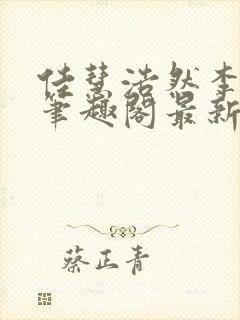 佳慧浩然李
笔趣阁最新
蔡正青